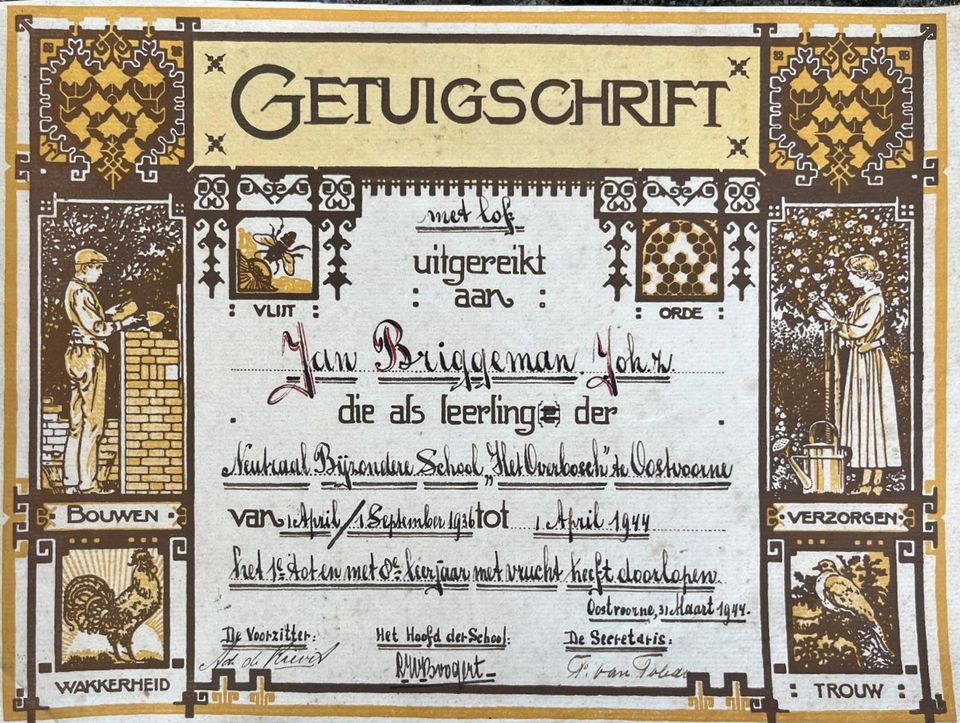 GETUIGSCHRIFT
met lof
uitgereikt
: aan :
: VLIJT :
: ORDE :
Jan Briggeman. Joh.z.
die als leerling(e) der
Neutraal Bijzondere School „Het Overbosch" te Oostvoorne
van 1 April/1 September 1936 tot 1 April 1944
het 1e tot en met 8e leerjaar met vrucht heeft doorlopen.
Oostvoorne, 31 Maart 1944.
De Voorzitter:
Het Hoofd der School:
De Secretaris:
BOUWEN
VERZORGEN
WAKKERHEID
: TROUW :